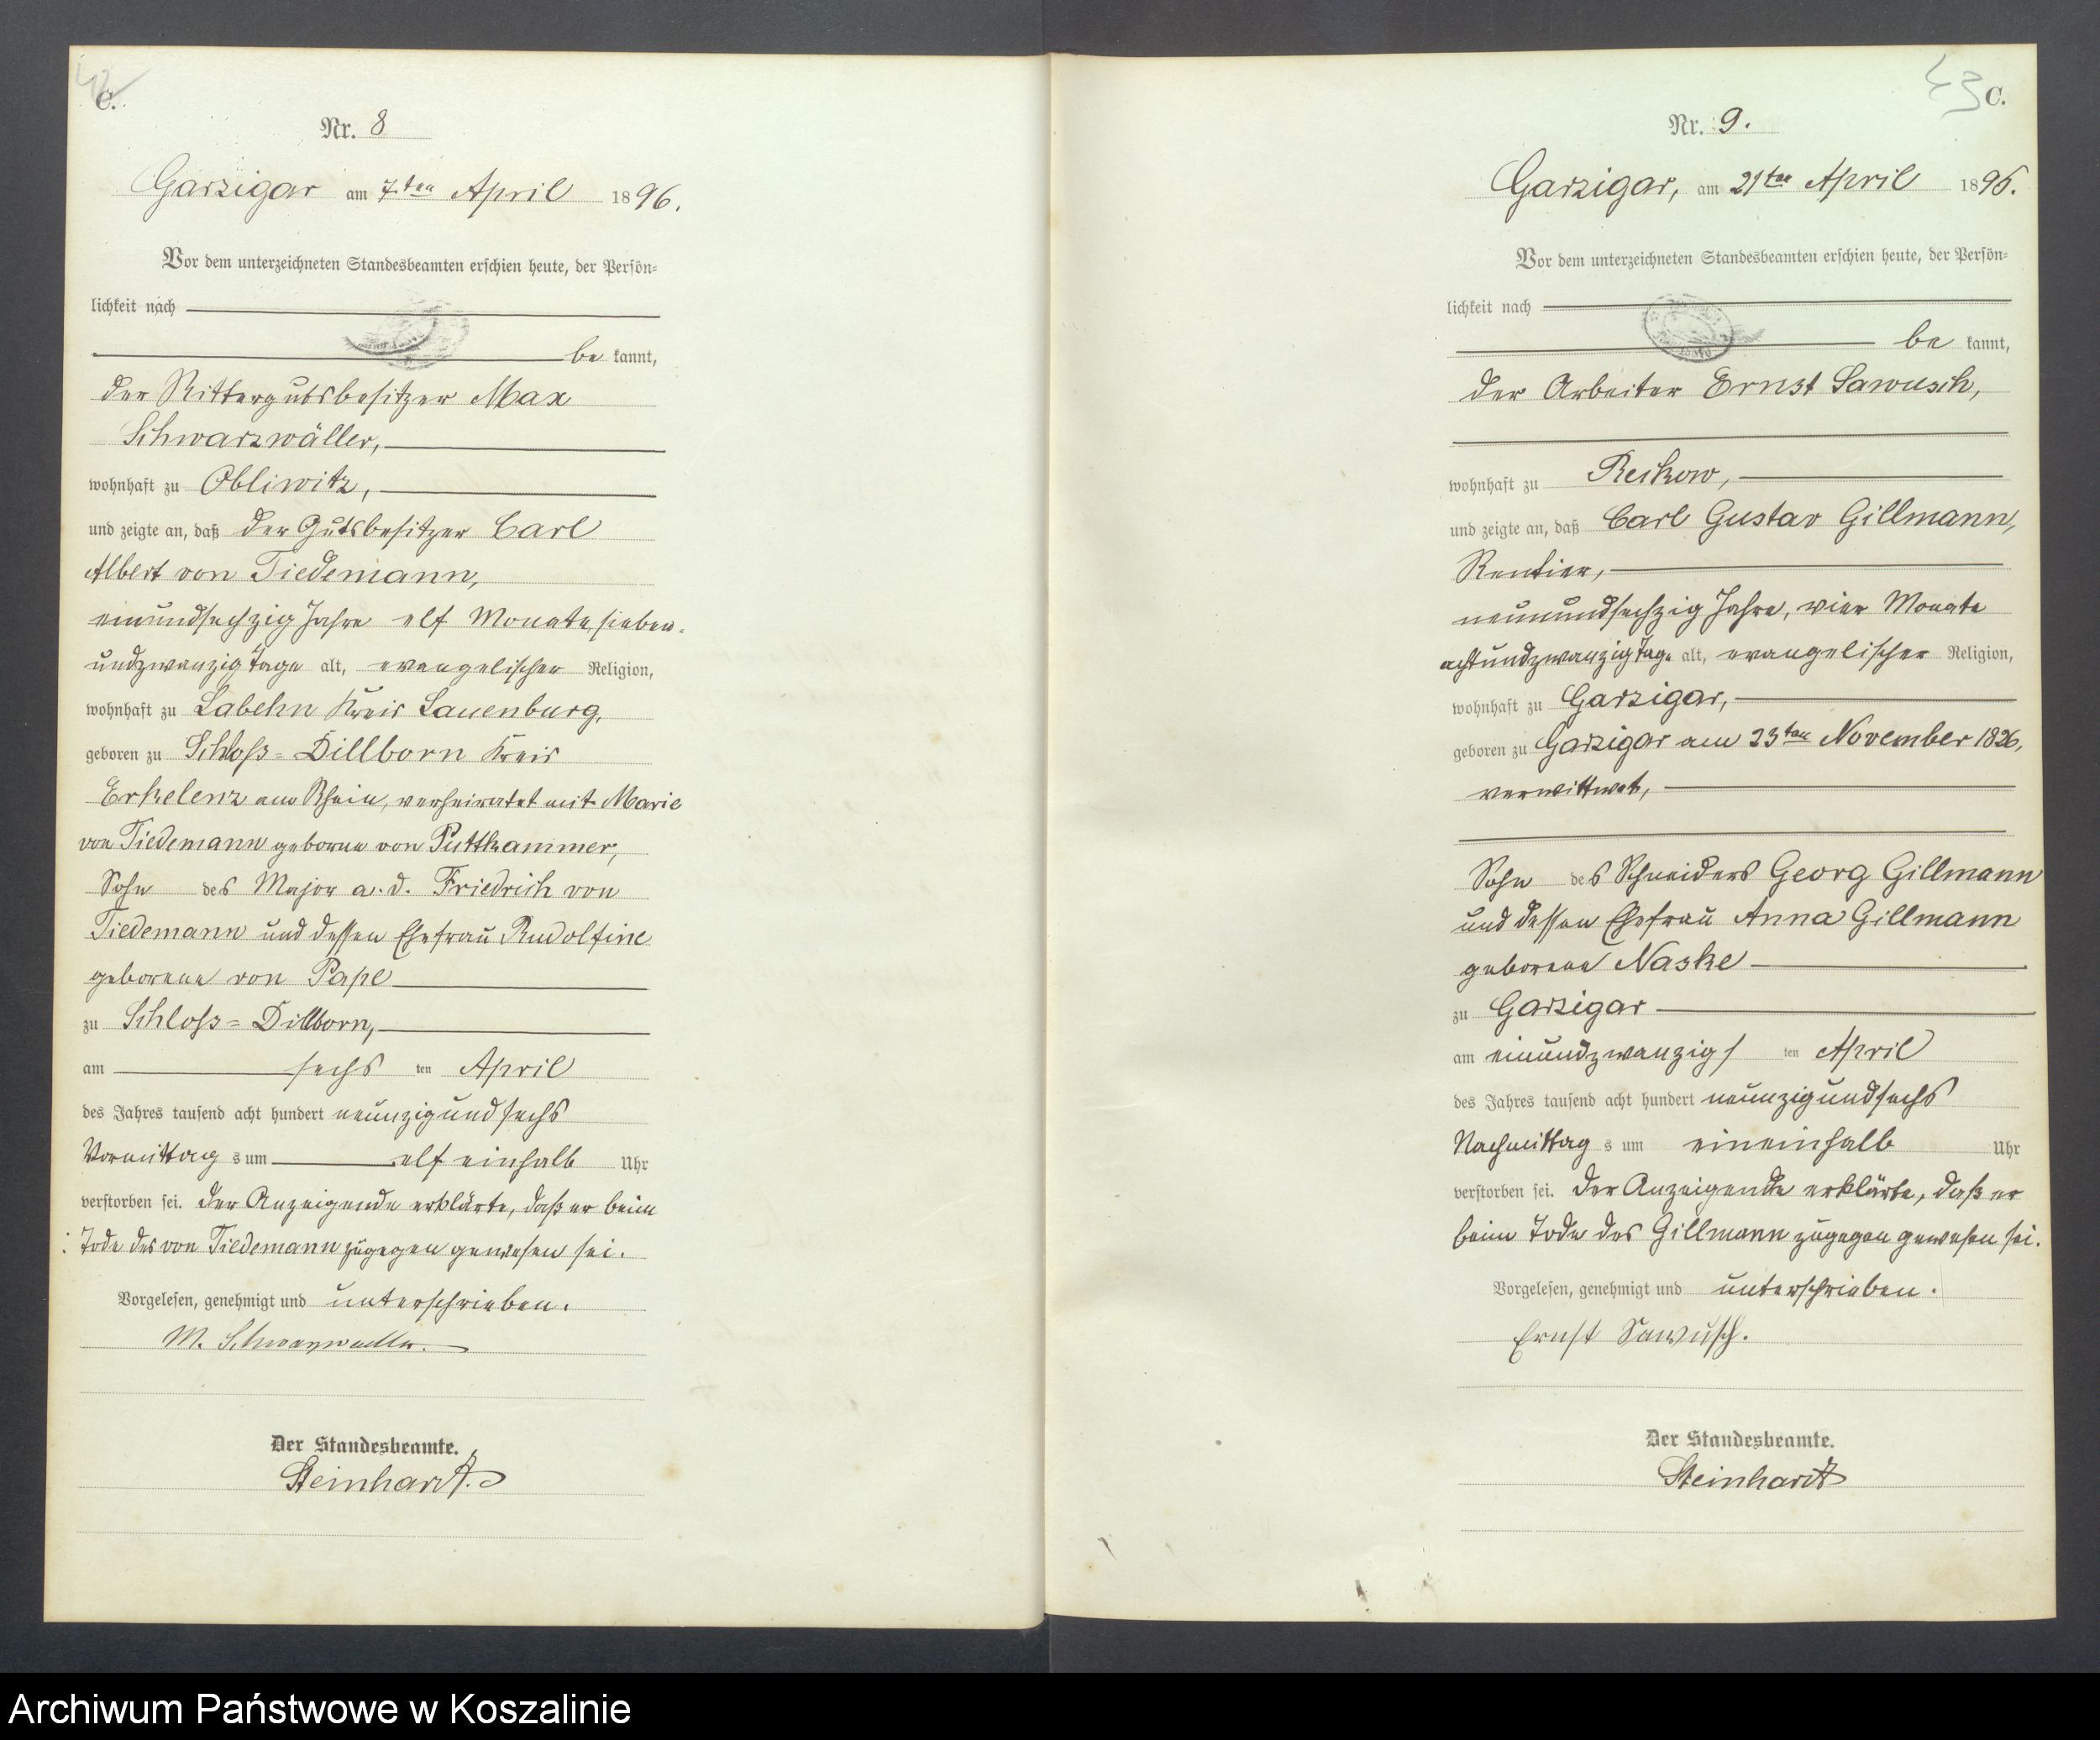 C.
Nr. 8
Garzigar am 7ten April 1896.
Vor dem unterzeichneten Standesbeamten erschien heute, der Persön-
lichkeit nach
be kannt,
der Rittergutsbesitzer Max
Schwarzwäller,
wohnhaft zu Obliwitz,
und zeigte an, daß der Gutsbesitzer Carl
Albert von Tiedemann,
einundsechzig Jahre elf Monate, sieben-
undzwanzig Tage alt, evangelischer Religion,
wohnhaft zu Labehn Kreis Lauenburg,
geboren zu Schloß-Dillborn Kreis
Erkelenz am Rhein, verheiratet mit Marie
von Tiedemann geborne von Puttkammer,
Sohn des Major a. d. Friedrich von
Tiedemann und dessen Ehefrau Rudolfine
geborene von Pape
zu Schloß-Dillborn,
am sechs ten April
des Jahres tausend acht hundert neunzig und sechs
Vormittag s um elf einhalb Uhr
verstorben sei. Der Anzeigende erklärte, daß er beim
Tode des von Tiedemann zugegen gewesen sei.
Vorgelesen, genehmigt und unterschrieben.
M. Schwarzwaeller.
Der Standesbeamte.
Steinhardt.
43 C.
Nr. 9.
Garzigar, am 21ten April 1896.
Vor dem unterzeichneten Standesbeamten erschien heute, der Persön-
lichkeit nach
be kannt,
der Arbeiter Ernst Sawusch,
wohnhaft zu Reckow,
und zeigte an, daß Carl Gustav Gillmann,
Rentier,
neunundsechzig Jahre, vier Monate
achtundzwanzig Tage alt, evangelischer Religion,
wohnhaft zu Garzigar,
geboren zu Garzigar am 23ten November 1826,
verwittwet,
Sohn des Schneiders Georg Gillmann
und dessen Ehefrau Anna Gillmann
geborene Naske
zu Garzigar
am einundzwanzigs ten April
des Jahres tausend acht hundert neunzig und sechs
Nachmittag s um eineinhalb Uhr
verstorben sei. Der Anzeigende erklärte, daß er
beim Tode des Gillmann zugegen gewesen sei.
Vorgelesen, genehmigt und unterschrieben.
Ernst Sawusch.
Der Standesbeamte.
Steinhardt
Archiwum Państwowe w Koszalinie